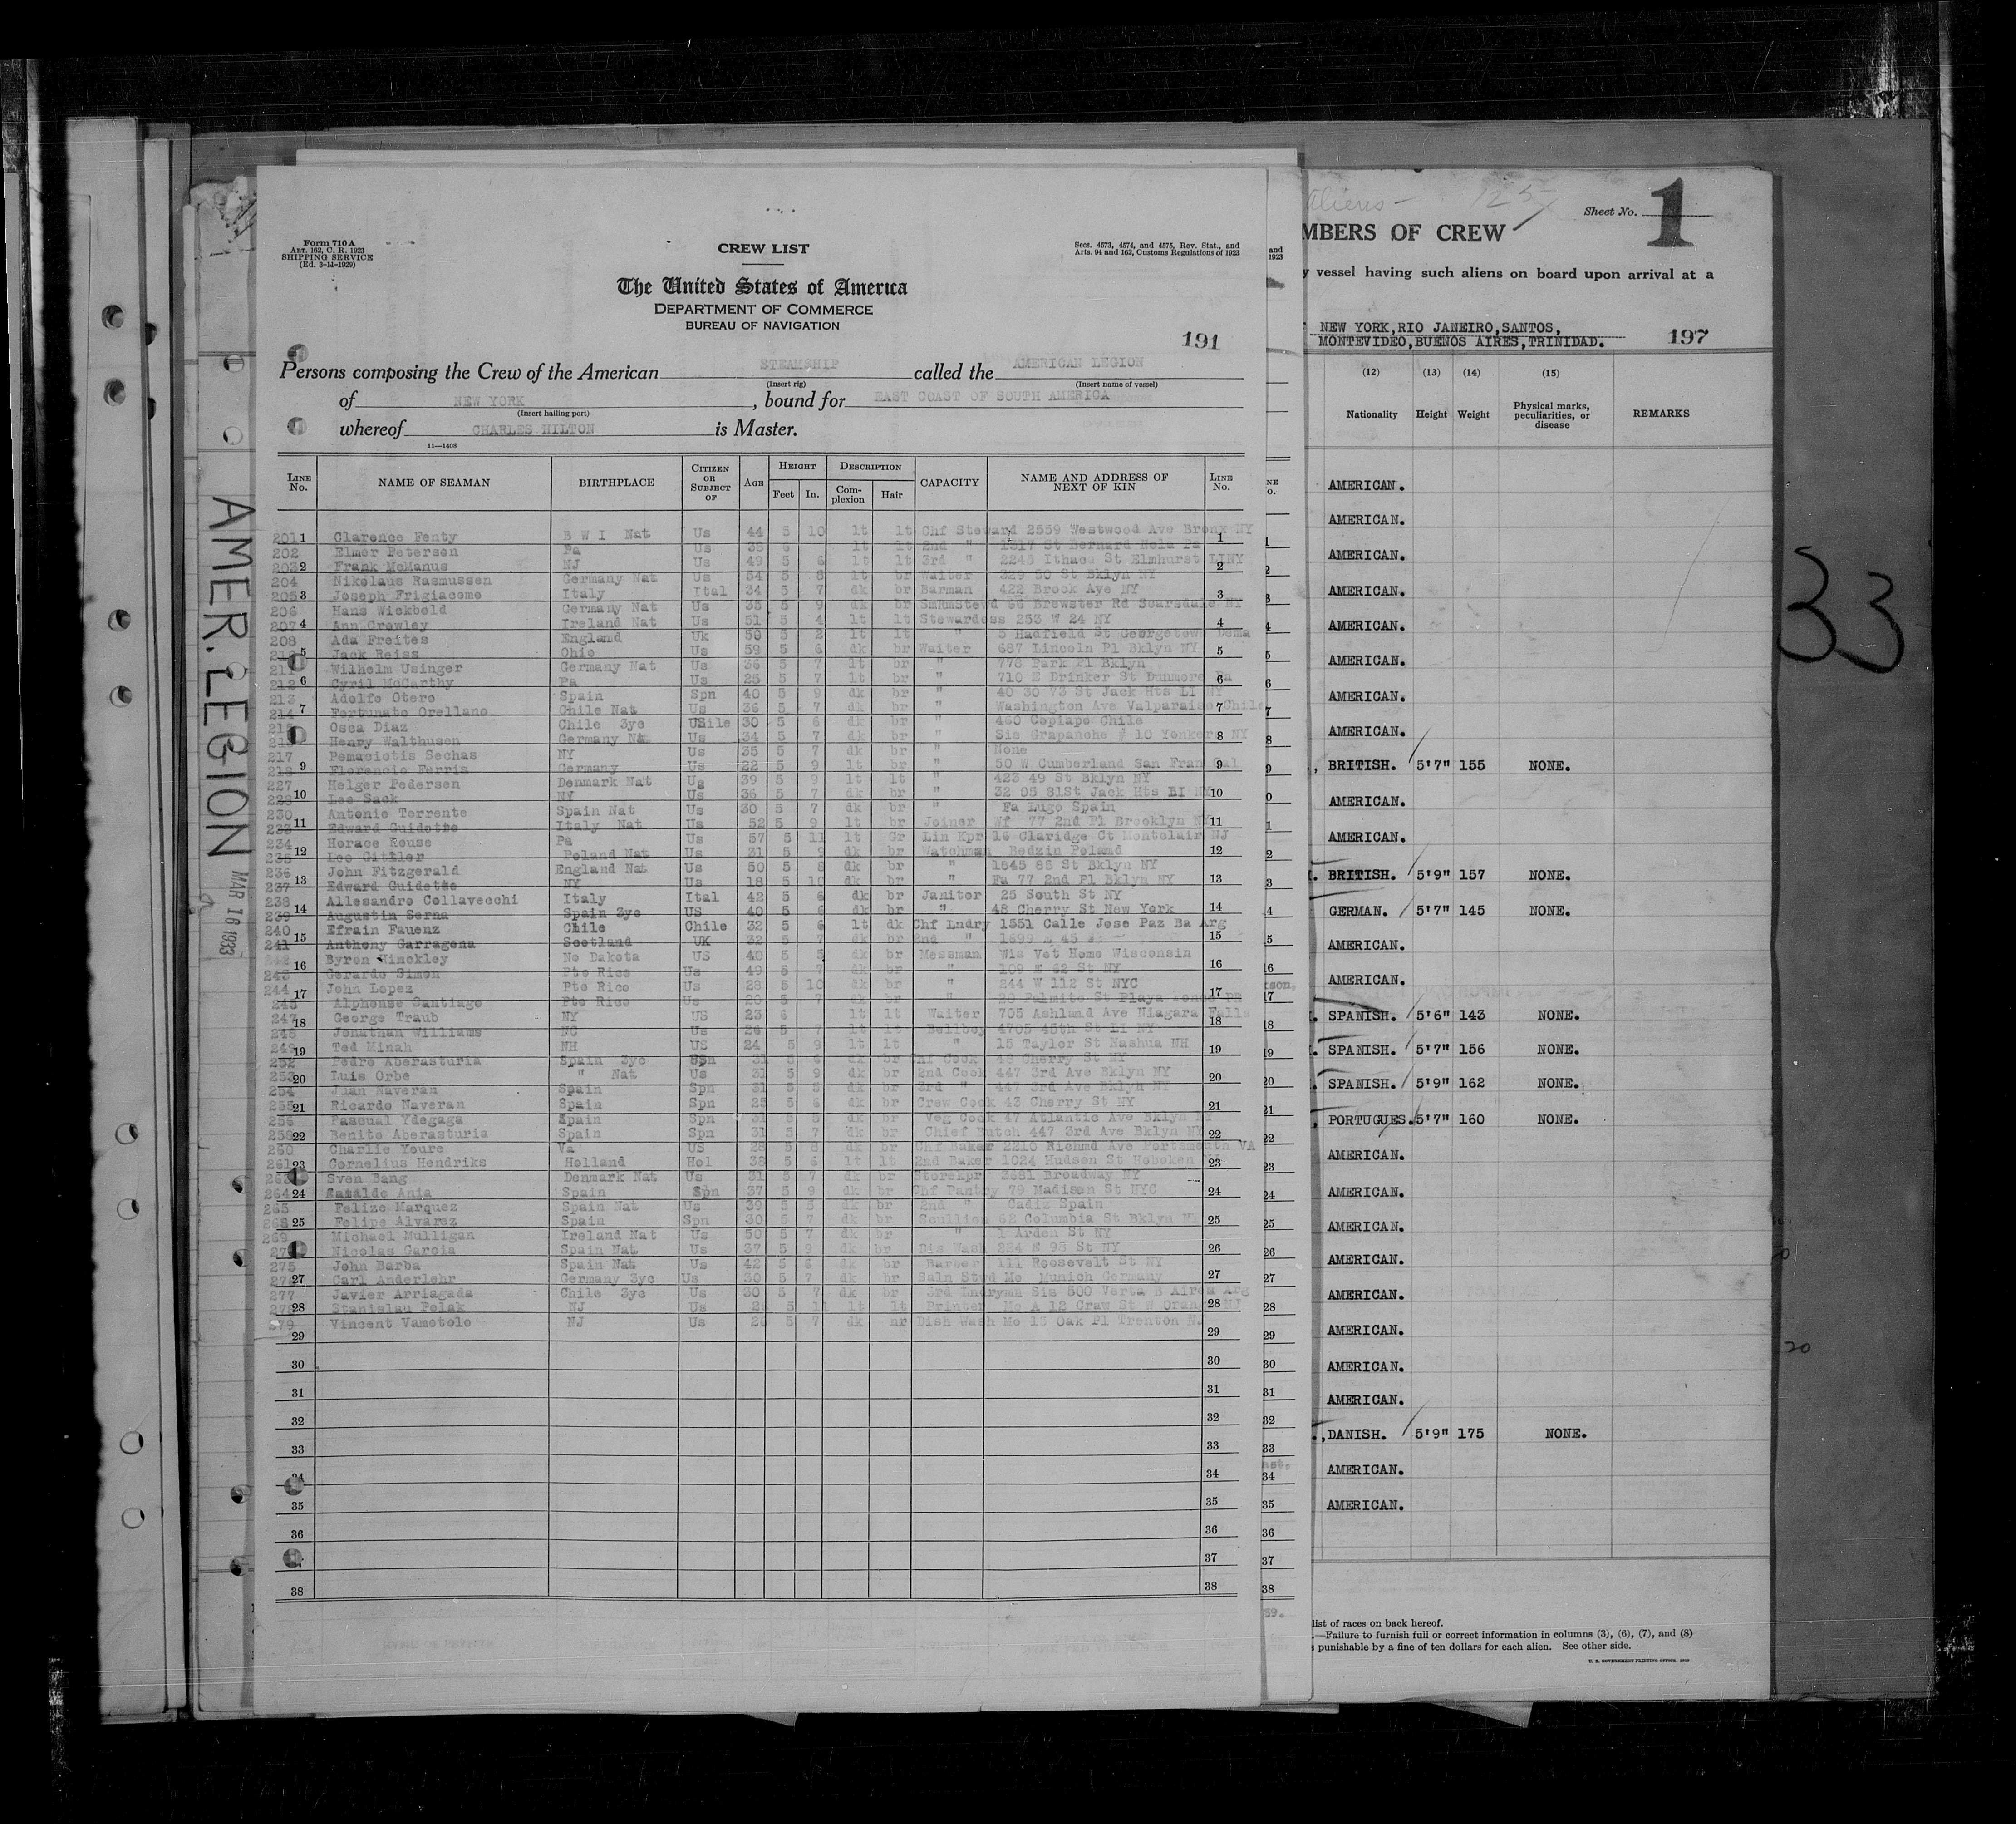 Form 710 A
ART. 162, C. R. 1923
SHIPPING SERVICE
(Ed. 3-14-1929)
CREW LIST
Secs. 4573, 4574, and 4575, Rev. Stat., and
Arts. 94 and 162, Customs Regulations of 1923
The United States of America
DEPARTMENT OF COMMERCE
BUREAU OF NAVIGATION
191
Persons composing the Crew of the American STEAMSHIP called the AMERICAN LEGION
(Insert rig) (Insert name of vessel)
of NEW YORK, bound for EAST COAST OF SOUTH AMERICA
(Insert hailing port)
whereof CHARLES HILTON is Master.
11—1408
LINE No. NAME OF SEAMAN BIRTHPLACE CITIZEN OR SUBJECT OF AGE HEIGHT Feet In. DESCRIPTION Complexion Hair CAPACITY NAME AND ADDRESS OF NEXT OF KIN LINE No.
201 1 Clarence Fenty B W I Nat Us 44 5 10 lt lt Chf Steward 2559 Westwood Ave Bronx NY 1
202 Elmer Petersen Pa Us 38 6 lt lt 2nd " 1317 St Bernard Nola Pa
203 2 Frank McManus NJ Us 49 5 6 lt lt 3rd " 2245 Ithaca St Elmhurst LINY 2
204 Nikolaus Rasmussen Germany Nat Us 54 5 8 lt br Waiter 329 50 St Bklyn NY
205 3 Joseph Frigiacomo Italy Ital 34 5 7 dk br Barman 422 Brook Ave NY 3
206 Hans Wickbold Germany Nat Us 35 5 9 dk br Smrmstewd 66 Brewster Rd Scarsdale NY
207 4 Ann Crowley Ireland Nat Us 51 5 4 lt lt Stewardess 253 W 24 NY 4
208 Ada Freites England Uk 50 5 2 lt lt " 5 Hadfield St Georgetown Dema
5 Jack Reiss Ohio Us 59 5 6 dk br Waiter 687 Lincoln Pl Bklyn NY 5
211 Wilhelm Usinger Germany Nat Us 36 5 7 lt br " 778 Park Pl Bklyn
212 6 Cyril McCarthy Pa Us 25 5 7 lt br " 710 E Drinker St Dunmore Pa 6
213 Adolfo Otero Spain Spn 40 5 9 dk br " 40 30 73 St Jack Hts LI NY
214 7 Fortunato Orellano Chile Nat Us 36 5 7 dk br " Washington Ave Valparaiso Chile 7
Osca Diaz Chile 3yc 30 5 6 dk br " 460 Copiapo Chile
Henry Walthusen Germany Nat Us 34 5 7 dk br " Sis Grapanche # 10 Yonkers NY 8
217 Pemaciotis Sechas NY Us 35 5 7 dk br " None
218 9 Florencio Ferris Germany Us 22 5 9 lt br " 50 W Cumberland San Fran Cal 9
227 Holger Pedersen Denmark Nat Us 39 5 9 lt lt " 423 49 St Bklyn NY
228 10 Leo Sack NY Us 36 5 7 dk br " 32 05 81St Jack Hts LI NY 10
230 Antonio Torrente Spain Nat Us 30 5 7 dk br " Fa Lugo Spain
233 11 Edward Guidotte Italy Nat Us 52 5 9 lt br Joiner Wf 77 2nd Pl Brooklyn NY 11
234 Horace Rouse Pa Us 57 5 11 lt Gr Lin Kpr 16 Claridge Ct Montclair NJ
235 12 Leo Gittler Poland Nat Us 31 5 9 dk br Watchman Bedzin Poland 12
236 John Fitzgerald England Nat Us 50 5 8 dk br " 1845 85 St Bklyn NY
237 13 Edward Guidotte NY Us 18 5 10 dk br " Fa 77 2nd Pl Bklyn NY 13
238 Allesandro Collavecchi Italy Ital 42 5 6 dk br Janitor 25 South St NY
239 14 Augustin Serna Spain 3yc US 40 5 6 dk br " 48 Cherry St New York 14
240 Efrain Fauenz Chile Chile 32 5 6 lt dk Chf Lndry 1551 Calle Jose Paz Ba Arg
241 15 Anthony Garragena Scotland UK 32 5 7 dk br 2nd " 1699 15
Byron Hinckley No Dakota US 40 5 5 dk br Messman Wis Vet Home Wisconsin
243 16 Gerardo Simon Pto Rico Us 49 5 7 dk br " 109 E 62 St NY 16
244 17 John Lopez Pto Rico Us 28 5 10 dk br " 244 W 112 St NYC 17
245 Alphonse Santiago Pto Rico Us 20 5 7 dk br " 28 Palmito St Playa
247 18 George Traub NY US 23 6 lt lt Waiter 705 Ashland Ave Niagara Falls 18
248 Jonathan Williams NC Us 26 5 7 lt lt Bellboy 4705 45th St LI NY
249 19 Ted Minah NH US 24 5 9 lt lt " 15 Taylor St Nashua NH 19
252 Pedro Aberasturia Spain 3yc Spn 31 5 6 dk br Chf Cook 48 Cherry St NY
253 20 Luis Orbe " Nat Us 31 5 9 dk br 2nd Cook 447 3rd Ave Bklyn NY 20
254 Juan Naveran Spain Spn 31 5 8 dk br 3rd " 447 3rd Ave Bklyn NY
255 21 Ricardo Naveran Spain Spn 25 5 6 dk br Crew Cook 43 Cherry St NY 21
256 Pascual Ydegaga Spain Spn 31 5 8 dk br Veg Cook 47 Atlantic Ave Bklyn NY
258 22 Benito Aberasturia Spain Spn 31 5 7 dk br Chief Butch 447 3rd Ave Bklyn NY 22
260 Charlie Youre Va US 28 5 8 dk br Chf Baker 2216 Richmd Ave Portsmouth VA
261 23 Cornelius Hendriks Holland Hol 38 5 6 lt lt 2nd Baker 1024 Hudson St Hoboken 23
Sven Bang Denmark Nat Us 31 5 7 dk br Storekpr 3681 Broadway NY
264 24 Ania Spain Spn 37 5 9 dk br Chf Pantry 79 Madison St NYC 24
265 Felize Marquez Spain Nat Us 39 5 5 dk br 2nd " Cadiz Spain
268 25 Felipe Alvarez Spain Spn 30 5 7 dk br Scullion 62 Columbia St Bklyn NY 25
269 Michael Mulligan Ireland Nat Us 50 5 7 dk br " 1 Arden St NY
Nicolas Garcia Spain Nat Us 37 5 9 dk br Dis Wash 224 E 95 St NY 26
275 John Barba Spain Nat Us 42 5 6 dk br Barber 111 Roosevelt St NY
27 Carl Anderlehr Germany 3yc Us 30 5 7 dk br Saln Stwd Mo Munich Germany 27
277 Javier Arriagada Chile 3yc Us 30 5 7 dk br 3rd Lndrymn Sis 500 Verta B Aires Arg
28 Stanislau Polak NJ Us 5 11 lt lt Printer Mo A 12 Craw St W Orange NJ 28
279 Vincent Vamotolo NJ Us 5 7 dk Dish Wash Mo 15 Oak Pl Trenton NJ
29 29
30 30
31 31
32 32
33 33
34 34
35 35
36 36
37
38 38
AMER. LEGION MAR 18 1933
Aliens - 125
Sheet No. 1
MBERS OF CREW
y vessel having such aliens on board upon arrival at a
NEW YORK, RIO JANEIRO, SANTOS,
MONTEVIDEO, BUENOS AIRES, TRINIDAD.
197
(12) (13) (14) (15)
Nationality Height Weight Physical marks, peculiarities, or disease REMARKS
AMERICAN.
AMERICAN.
AMERICAN.
AMERICAN.
AMERICAN.
AMERICAN.
AMERICAN.
AMERICAN.
BRITISH. 5'7" 155 NONE.
AMERICAN.
AMERICAN.
BRITISH. 5'9" 157 NONE.
GERMAN. 5'7" 145 NONE.
AMERICAN.
AMERICAN.
SPANISH. 5'6" 143 NONE.
SPANISH. 5'7" 156 NONE.
SPANISH. 5'9" 162 NONE.
PORTUGUES. 5'7" 160 NONE.
AMERICAN.
AMERICAN.
AMERICAN.
AMERICAN.
AMERICAN.
AMERICAN.
AMERICAN.
AMERICAN.
DANISH. 5'9" 175 NONE.
AMERICAN.
AMERICAN.
list of races on back hereof.
—Failure to furnish full or correct information in columns (3), (6), (7), and (8)
punishable by a fine of ten dollars for each alien. See other side.
U. S. GOVERNMENT PRINTING OFFICE
33